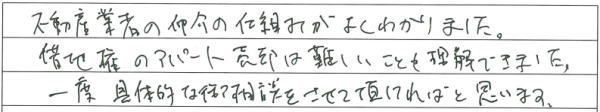 不動産業者の仲介の仕組みがよくわかりました。
借地権のアパート売却は難しいことも理解できました。
一度具体的な御相談をさせて頂ければと思います。